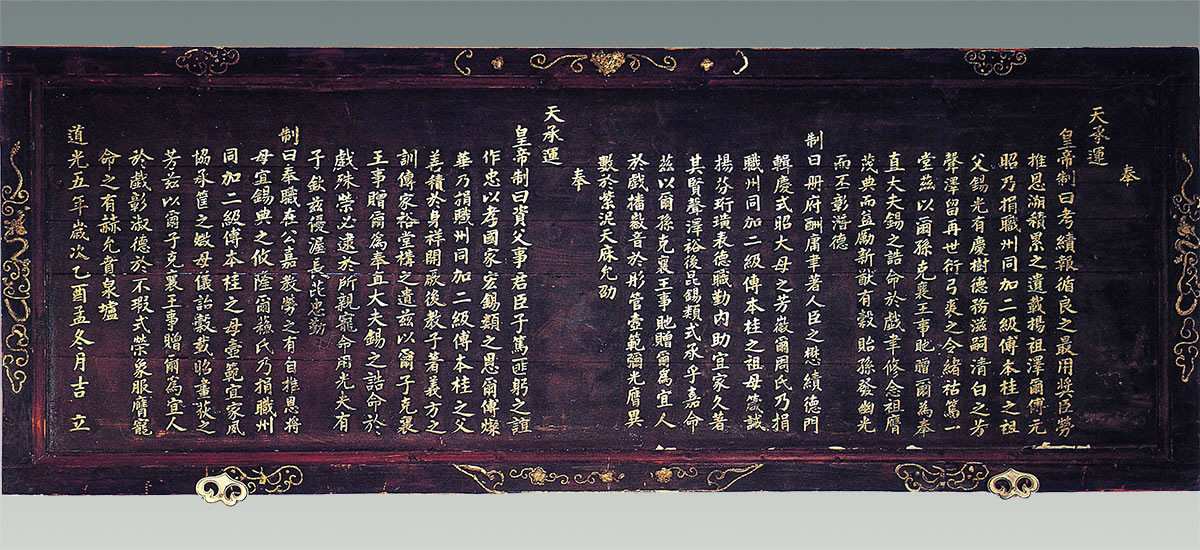 奉
天承運
皇帝制曰考績報循良之最用奬臣勞
推恩溯積累之遺載揚祖澤爾傅元
昭乃捐職州同加二級傅本柱之祖
父錫光有慶樹德務滋嗣清白之芳
聲澤留再世衍弓裘之令緒祜篤一
堂茲以爾孫克襄王事貤贈爾為奉
直大夫錫之誥命於戲聿修念祖膺
茂典而益勵新猷有穀貽孫發幽光
而丕彰潛德
制曰册府酬庸聿著人臣之懋績德門
輯慶式昭大母之芳徽爾周氏乃捐
職州同加二級傅本柱之祖母箴誡
揚芬珩璜表德職勤內助宜家久著
其賢聲澤裕後昆錫類式承乎嘉命
茲以爾孫克襄王事貤贈爾為宜人
於戲播徽音於彤管壼範彌光膺異
數於紫泥天庥允劭
奉
天承運
皇帝制曰資父事君臣子篤匪躬之誼
作忠以孝國家宏錫類之恩爾傅燦
華乃捐職州同加二級傅本柱之父
善積於身祥開厥後教子著義方之
訓傳家裕堂構之遺茲以爾子克襄
王事贈爾為奉直大夫錫之誥命於
戲殊榮必逮於所親寵命用光夫有
子欽茲優渥長茈忠勤
制曰奉職在公嘉教勞之有自推恩將
母宜錫典之攸隆爾趙氏乃捐職州
同加二級傅本柱之母壼範宜家夙
協承筐之媺母儀詒穀載昭畫荻之
芳茲以爾子克襄王事贈爾為宜人
於戲彰淑德於不瑕式榮象服膺寵
命之有赫允賁泉壚
道光五年歲次乙酉孟冬月吉立